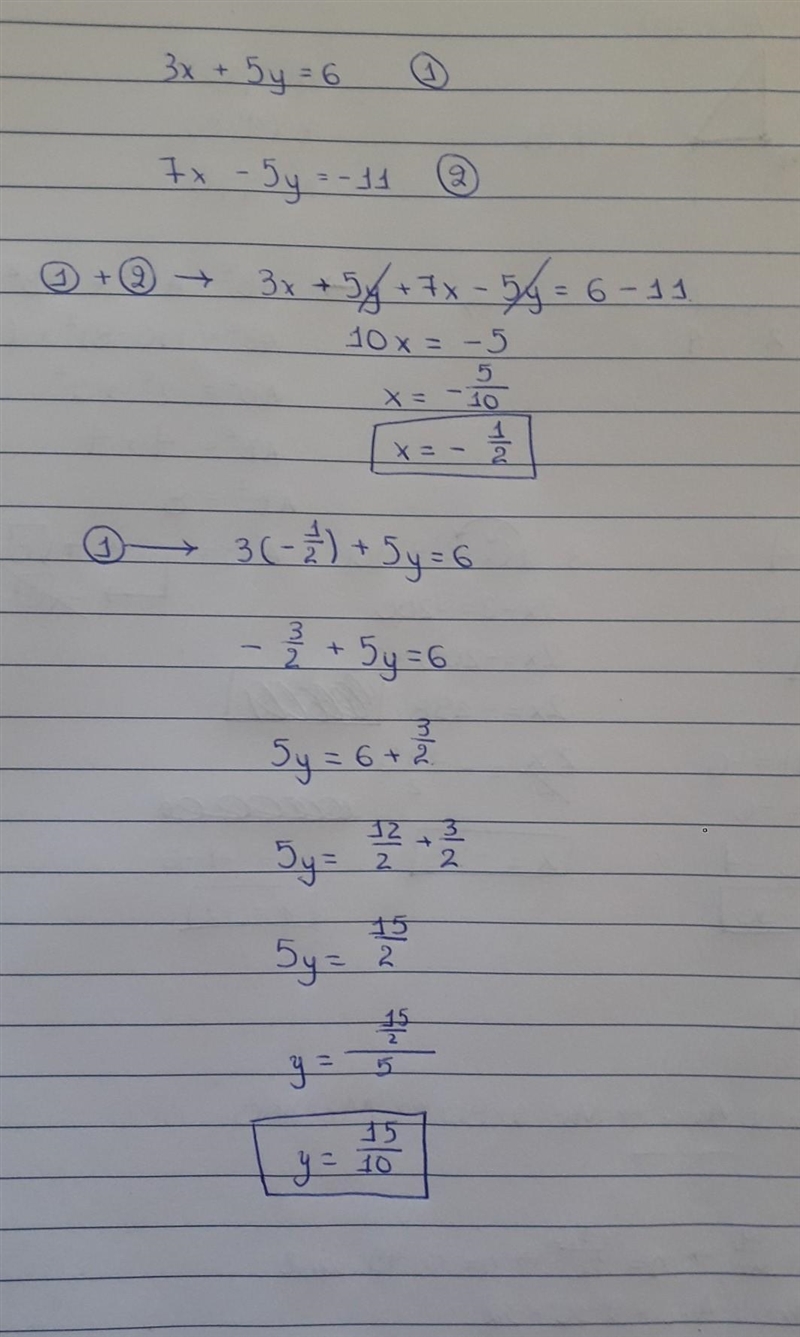 3x + 5y = 6 ①
7x - 5y = -11 ②
① + ② → 3x + 5y + 7x - 5y = 6 - 11
10x = -5
x = - 5/10
x = - 1/2
① → 3(-1/2) + 5y = 6
- 3/2 + 5y = 6
5y = 6 + 3/2
5y = 12/2 + 3/2
5y = 15/2
y = 15/2 / 5
y = 15/10